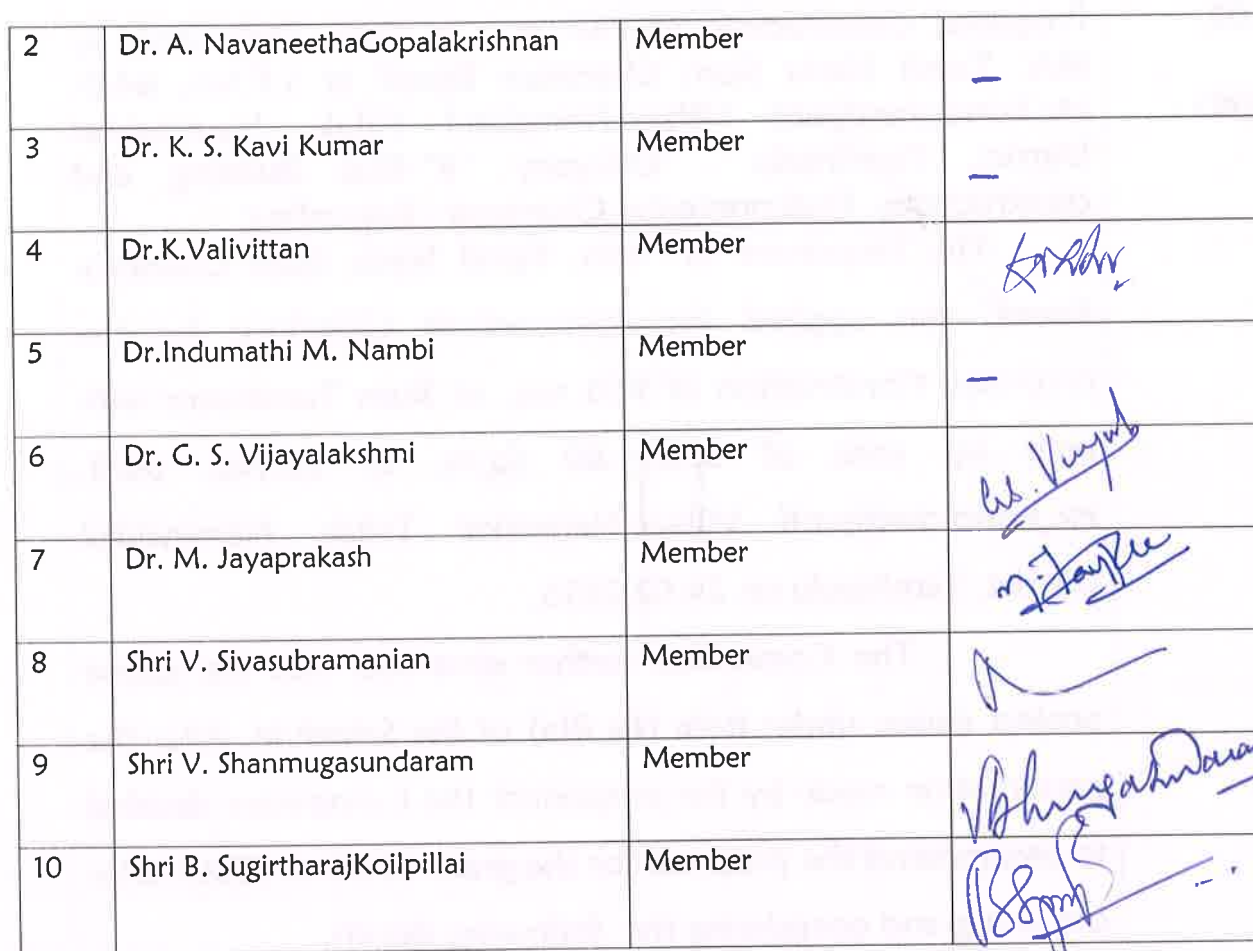 2 Dr. A. NavaneethaGopalakrishnan Member –
3 Dr. K. S. Kavi Kumar Member –
4 Dr.K.Valivittan Member
5 Dr.Indumathi M. Nambi Member –
6 Dr. G. S. Vijayalakshmi Member
7 Dr. M. Jayaprakash Member
8 Shri V. Sivasubramanian Member
9 Shri V. Shanmugasundaram Member
10 Shri B. SugirtharajKoilpillai Member